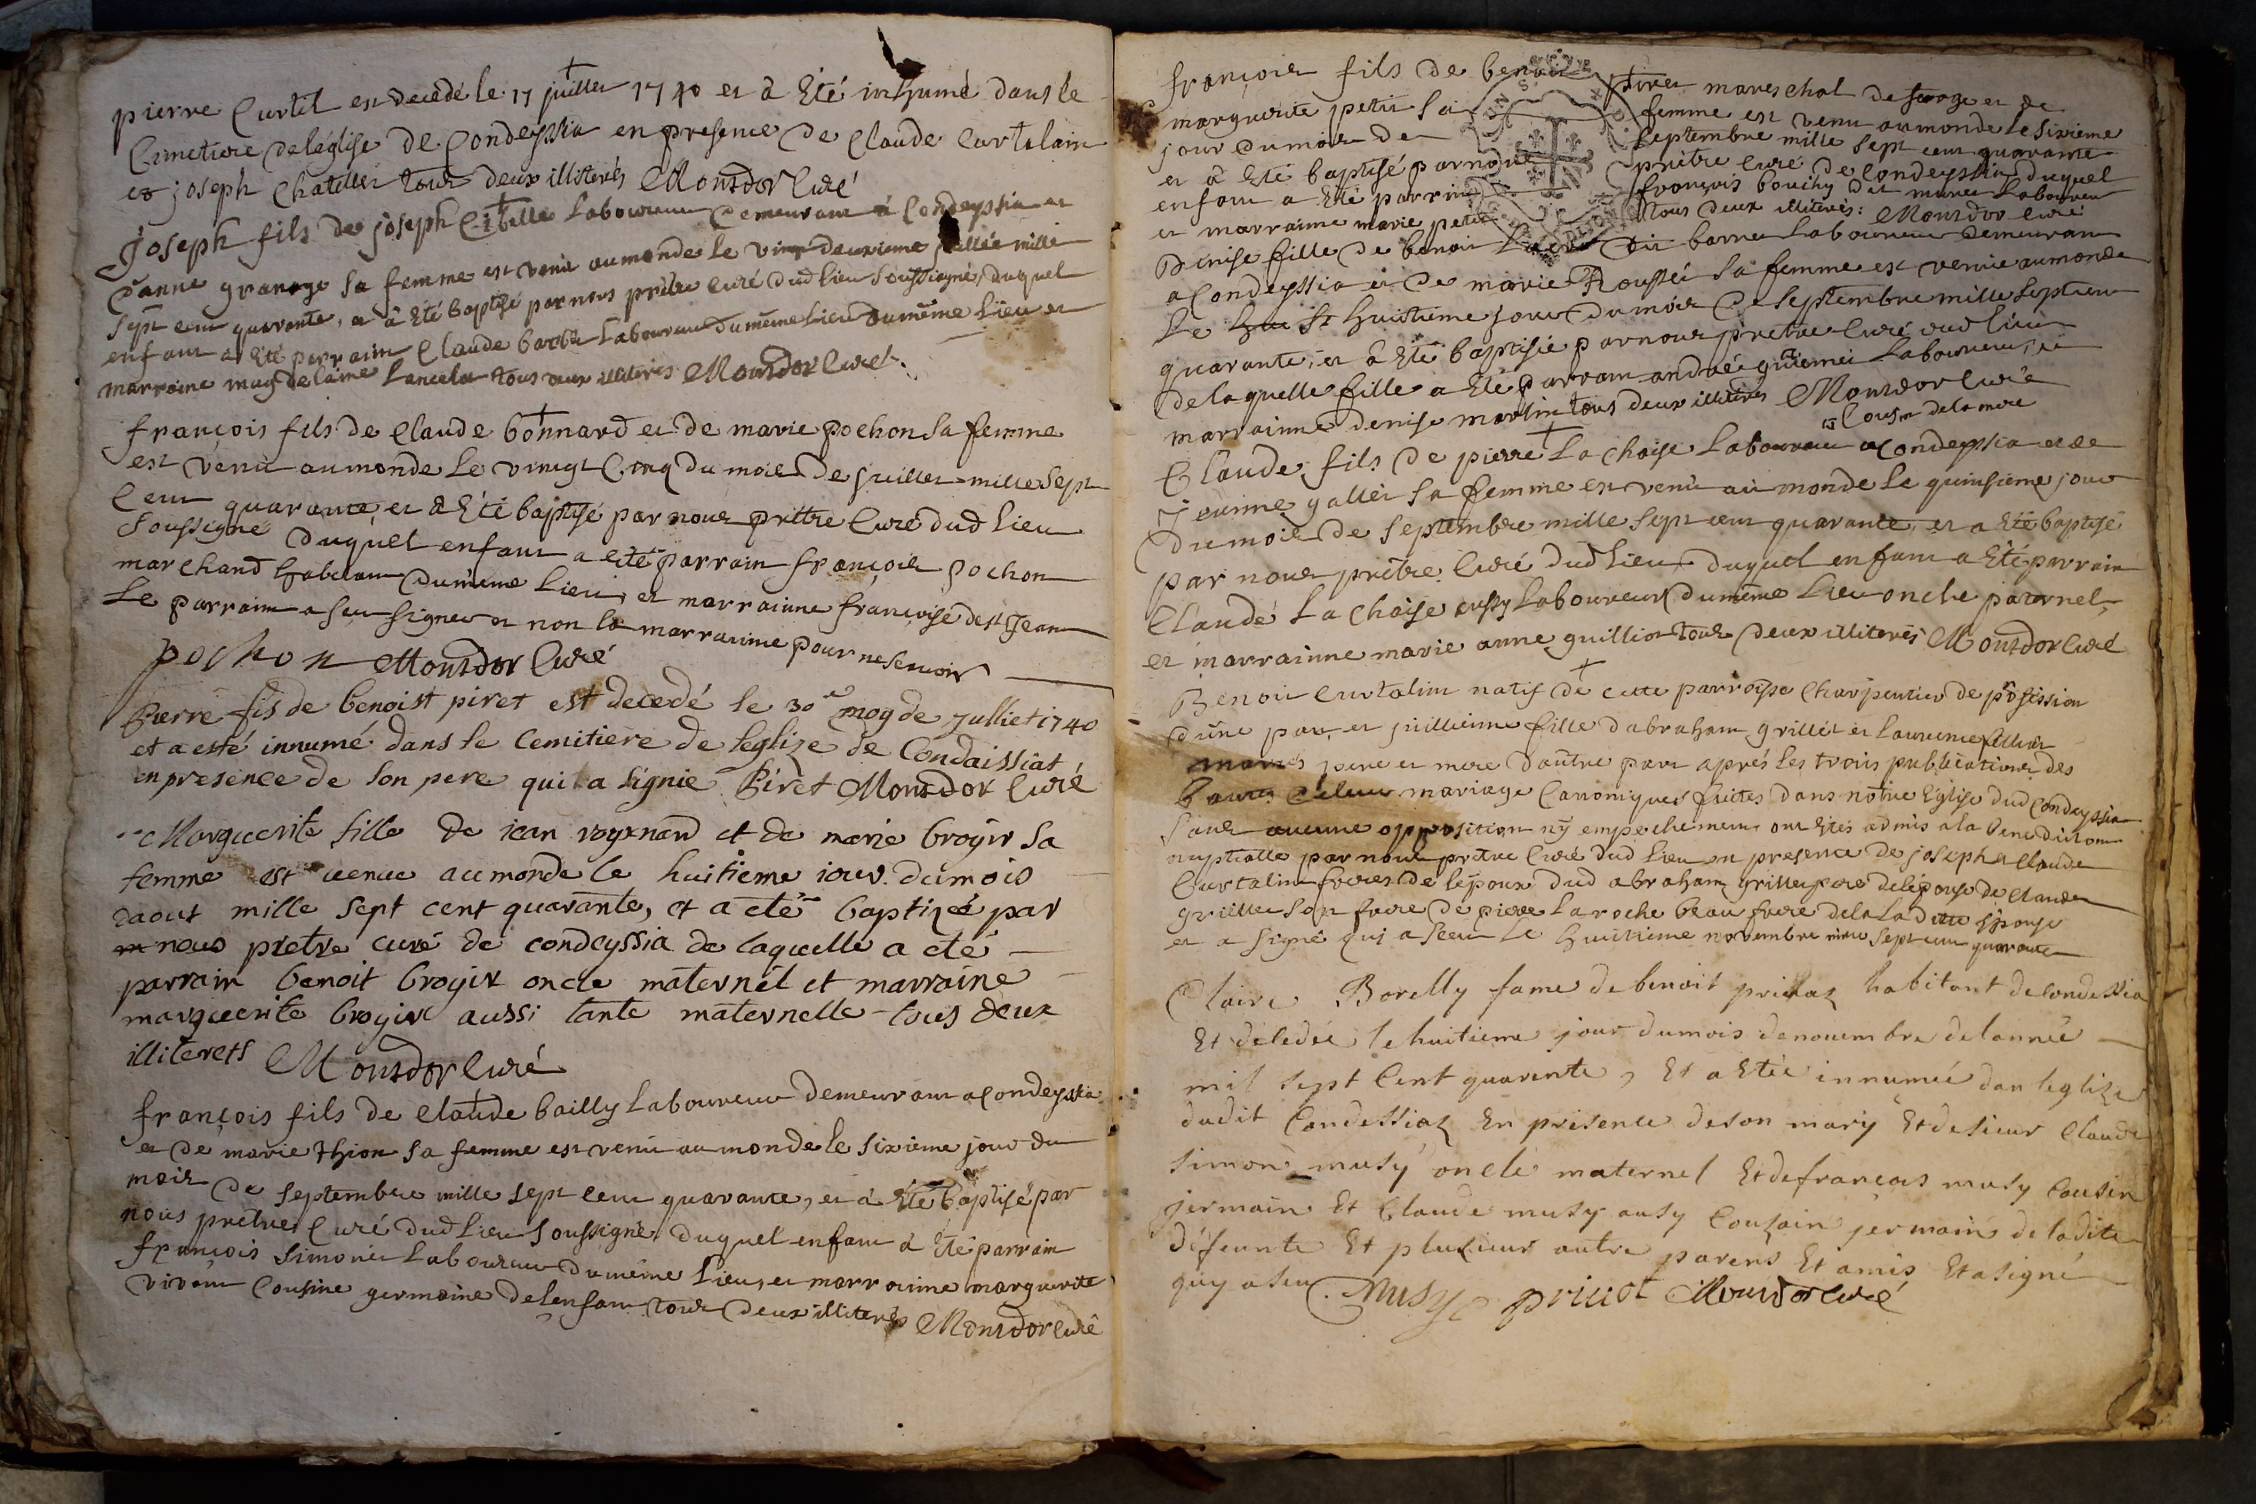 pierre Curtil est decedé le 17 juillet 1740 et à Eté inhumé dans le
Cimetiere de leglise de Condeyssia en presence de Claude Curtelain
et joseph Chatillet tous deux illiterés Monsdor Curé
joseph fils de joseph laboureur demeurant à Condeyssia et
d'anne grange sa femme est venu au monde le vingt deuxieme mille
sept cent quarante, et à Eté baptisé par nous prêtre curé dud lieu soussigné, duquel
enfant a Eté parrain Claude laboureur du même lieu du même lieu et
marraine magdelaine Lancelot tous deux illiteres Monsdor Curé
françois fils de Claude bonnard et de marie pochon sa femme
est venu au monde le vingt Cinq du mois de juillet mille sept
Cent quarante, et à Eté baptisé par nous prêtre Curé dud lieu
soussigné duquel enfant a eité parrain françois pochon
marchand habitant du meme lieu, et marrainne françoise de st jean
le parrain a sçu signer et non la marrainne pour ne scavoir
pochon Monsdor Curé
Pierre fis de benoist piret est decedé le 30e moy de julliet 1740
et a esté innumé dans le cemitiere de leglize de Condaissiat
en presence de son pere qui la signie Piret Monsdor Curé
Marguerite fille de iean voyxnard et de marie broyir sa
femme est venue au monde le huitieme iour du mois
daout mille sept cent quarante, et a eté baptizeé par
nous pretre curé de condeyssia de laquelle a eté
parrain benoit broyir oncle maternel et marraine
marguerite broyir aussi tante maternelle tous deux
illiterets Monsdor Curé
françois fils de claude bailly laboureur demeurant a Condeyssia
et de marie thion sa femme est venu au monde le sixieme jour du
mois de septembre mille sept cent quarante, et à Eté baptisé par
nous prêtre Curé dud lieu soussigné, duquel enfant à Eté parrain
françois simonin laboureur du même lieu, et marrainne marguerite
vivant cousine germaine de lenfant tous deux illiterés Monsdor curé
françois fils de benoit piret mareschal de forge et de
marguerite petit sa femme est venu au monde le sixieme
jour du mois de septembre mille sept cent quarante
et à Eté baptisé par nous prêtre curé de Condeyssia duquel
enfant a Eté parrain françois bouchy dit laboureur
et marraine marie petit tous deux illiterés: Monsdor curé
Denise fille de benoit dit laboureur demeurant
a Condeyssia et de marie Rousset sa femme est venue au monde
le huitieme jour du mois de septembre mille sept cent
quarante, et à Eté baptisée par nous prêtre Curé dud lieu
de laquelle fille a Eté parrain andré laboureur, et
marrainne denise martin tous deux illiterés Monsdor Curé
Cousin de la mere
Claude fils de pierre la chaise laboureur a Condeyssia et de
jeanne gallet sa femme est venu au monde le quinsieme jour
du mois de septembre mille sept cent quarante, et a Eté baptisé
par nous prêtre Curé dud lieu duquel enfant a Eté parrain
Claude la chaise aussy laboureur du même lieu oncle paternel,
et marrainne marie anne guillion tous deux illiterés Monsdor Curé
Benoit curtalin natif de cette parroisse charpentier de profession
d'une part et jullienne fille dabraham grillet et laurence
mariés pere et mere d'autre part aprés les trois publications des
bancs de leur mariage Canoniques faites dans notre Eglise dud Condeyssia
sans aucune opposition ny empechement ont Etés admis a la benediction
nuptialle par nous prêtre Curé dud lieu en presence de joseph et claude
Curtalin freres de lépoux dud abraham grillet pere de lépouse de claude
grillet son frere de pierre la roche beau frere de la ladite épouse
et a signé qui a sceu le huitieme novembre mille sept cent quarante
Claire Borelly fame de benoit privaz habitant de condessia
Et deledée le huitieme jour du mois de nouembre de lannée
mil sept Cent quarente, Et a Etée innumée dan leglize
dudit Condessiaz En présence de son mary Et de sieur Claude
simon musy oncle maternel Et de francois musy Cousin
jermain Et Claude musy ausy Couzain jermain de ladite
défeunte Et pluzieur autre parens Et amis Et a signé
quy a seu Musy privot Monsdor Curé